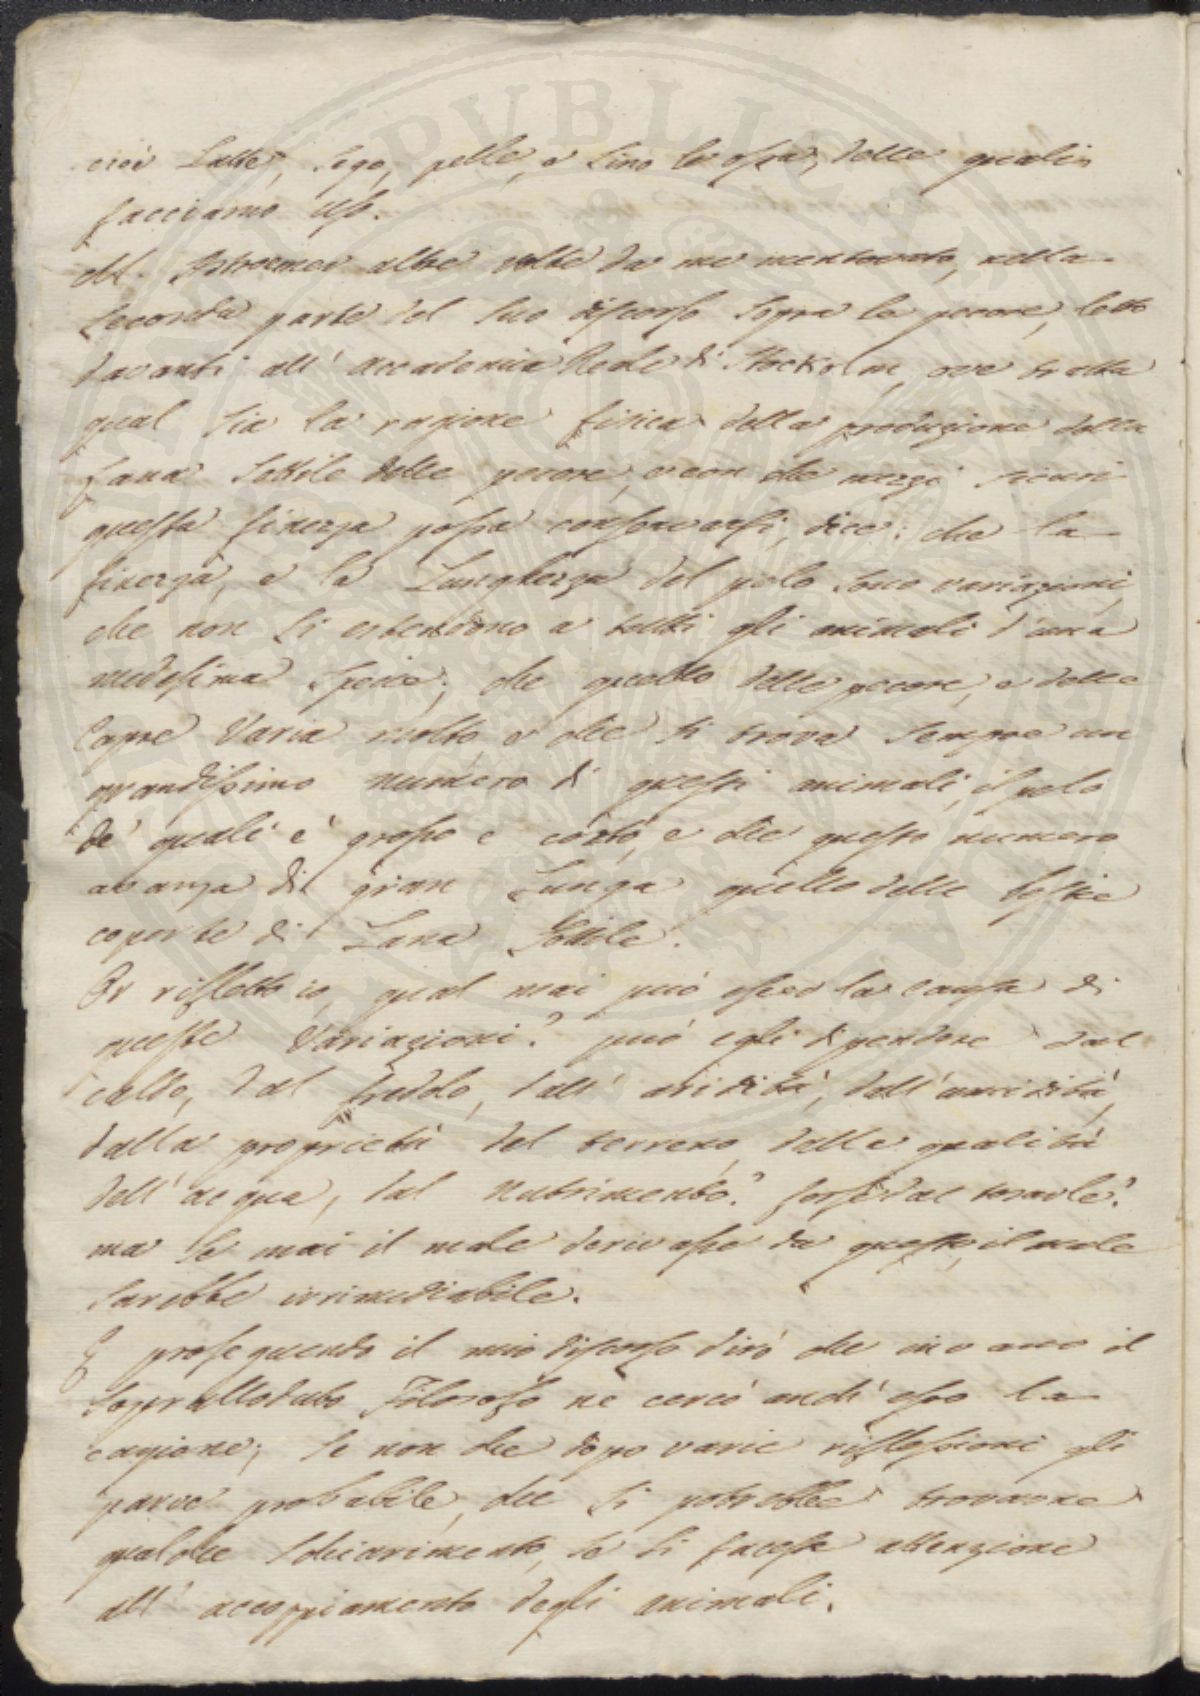 cioè Latte, Sego, pelle, e sino le ossa, delle quali
facciamo uso.
M. altre volte da me mentovato, nella
seconda parte del suo discorso sopra le pecore, letto
davanti all' accademia Reale di Stockolm, ove tratta
qual sia la ragione fisica della produzione della
Lana sottile delle pecore, e con che mezzi sicuri
questa finezza possa conservarsi, dice: che la
finezza, e la Lunghezza del pelo sono variazioni,
che non si estendono a tutti gli animali d'una
medesima Specie; che quello delle pecore, e delle
Capre Varia molto, e che si trova sempre un
grandissimo numero di questi animali, il pelo
de' quali è grosso e corto, e che questo numero
avanza di gran Lunga quello delle bestie
coperte di Lana Sottile.
Or rifletto io, qual mai può esser la causa di
queste Variazioni? può egli dipendere dal
caldo, dal freddo, dall' aridità, dall' umidità,
dalla proprietà del terreno, dalle qualità
dell' acqua, dal Nutrimento? forse dal
ma se mai il male derivasse da questo, il male
sarebbe irrimediabile.
E proseguendo il mio discorso dirò che il
soprallodato Filosofo ne cercò anch' esso la
cagione; se non che dopo varie riflessioni gli
parve probabile, che si potrebbe trovarne
qualche schiarimento, se si facesse attenzione
all' accoppiamento degli animali.
PUBLIC